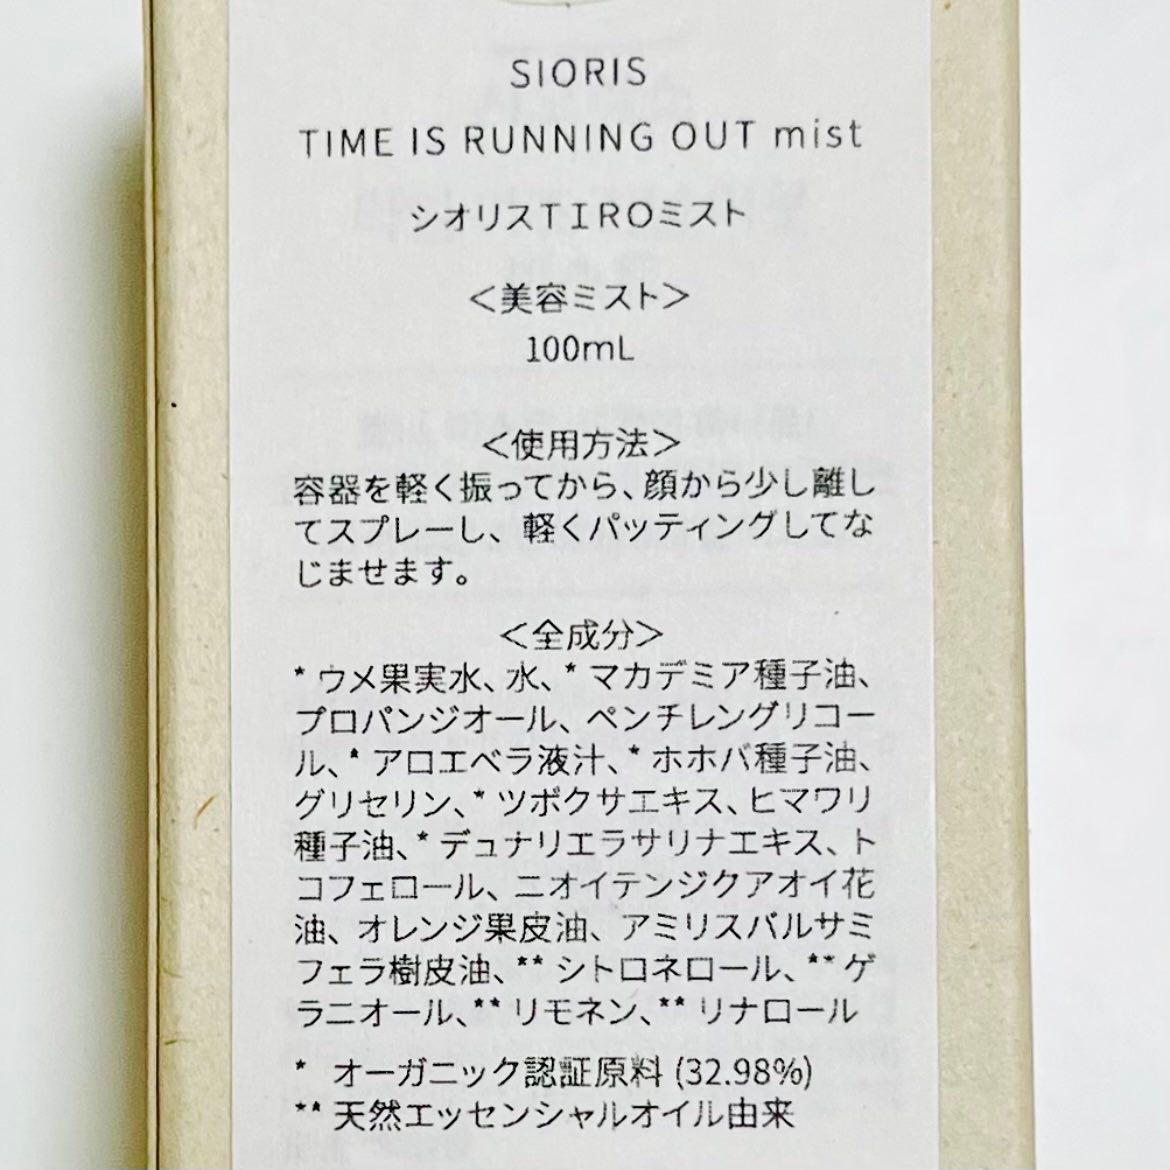 SIORIS
TIME IS RUNNING OUT mist
シオリスＴＩＲＯミスト
＜美容ミスト＞
100mL
＜使用方法＞
容器を軽く振ってから、顔から少し離し
てスプレーし、軽くパッティングしてな
じませます。
＜全成分＞
* ウメ果実水、水、* マカデミア種子油、
プロパンジオール、ペンチレングリコー
ル、* アロエベラ液汁、* ホホバ種子油、
グリセリン、* ツボクサエキス、ヒマワリ
種子油、* デュナリエラサリナエキス、ト
コフェロール、ニオイテンジクアオイ花
油、オレンジ果皮油、アミリスバルサミ
フェラ樹皮油、** シトロネロール、** ゲ
ラニオール、** リモネン、** リナロール
* オーガニック認証原料 (32.98%)
** 天然エッセンシャルオイル由来